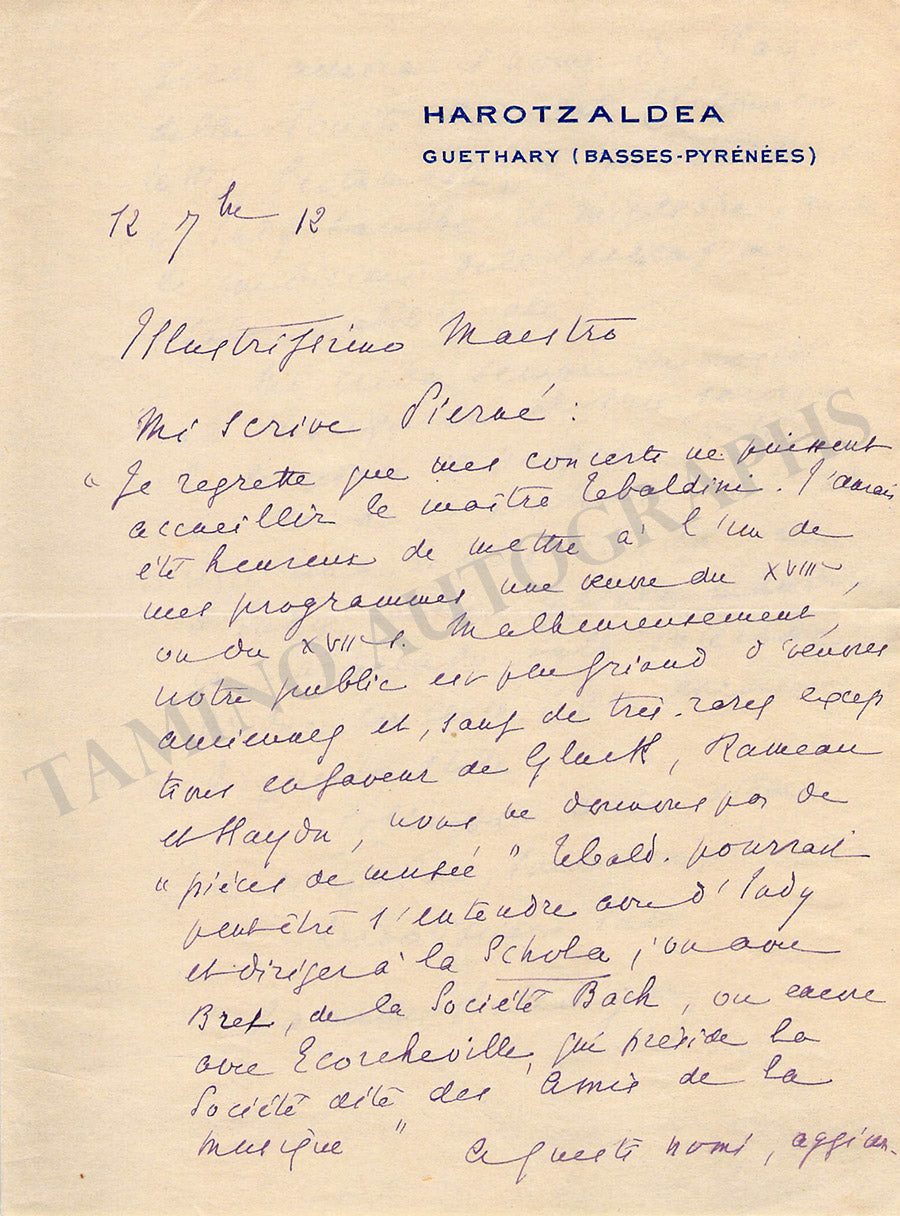 HAROTZALDEA
GUETHARY (BASSES-PYRÉNÉES)
12 7bre 12
Illustrissimo Maestro
Mi scrive Pierné :
" Je regrette que mes concerts ne puissent
accueillir le maître Tebaldini. J'aurais
été heureux de mettre à l'un de
mes programmes une œuvre du XVIIIe,
ou du XVIIe s. Malheureusement,
notre public est peu friand d'œuvres
anciennes et, sauf de très rares excep
tions en faveur de Gluck, Rameau
et Haydn, nous ne donnons pas de
" pièces de musée " Tebald. pourrait
peut être s'entendre avec d'Indy
et diriger à la Schola ; ou avec
Bret, de la Société Bach, ou encore
avec Ecorcheville, qui préside la
Société dite des Amis de la
musique "
A questi nomi, aggiun-
TAMINO AUTOGRAPHS